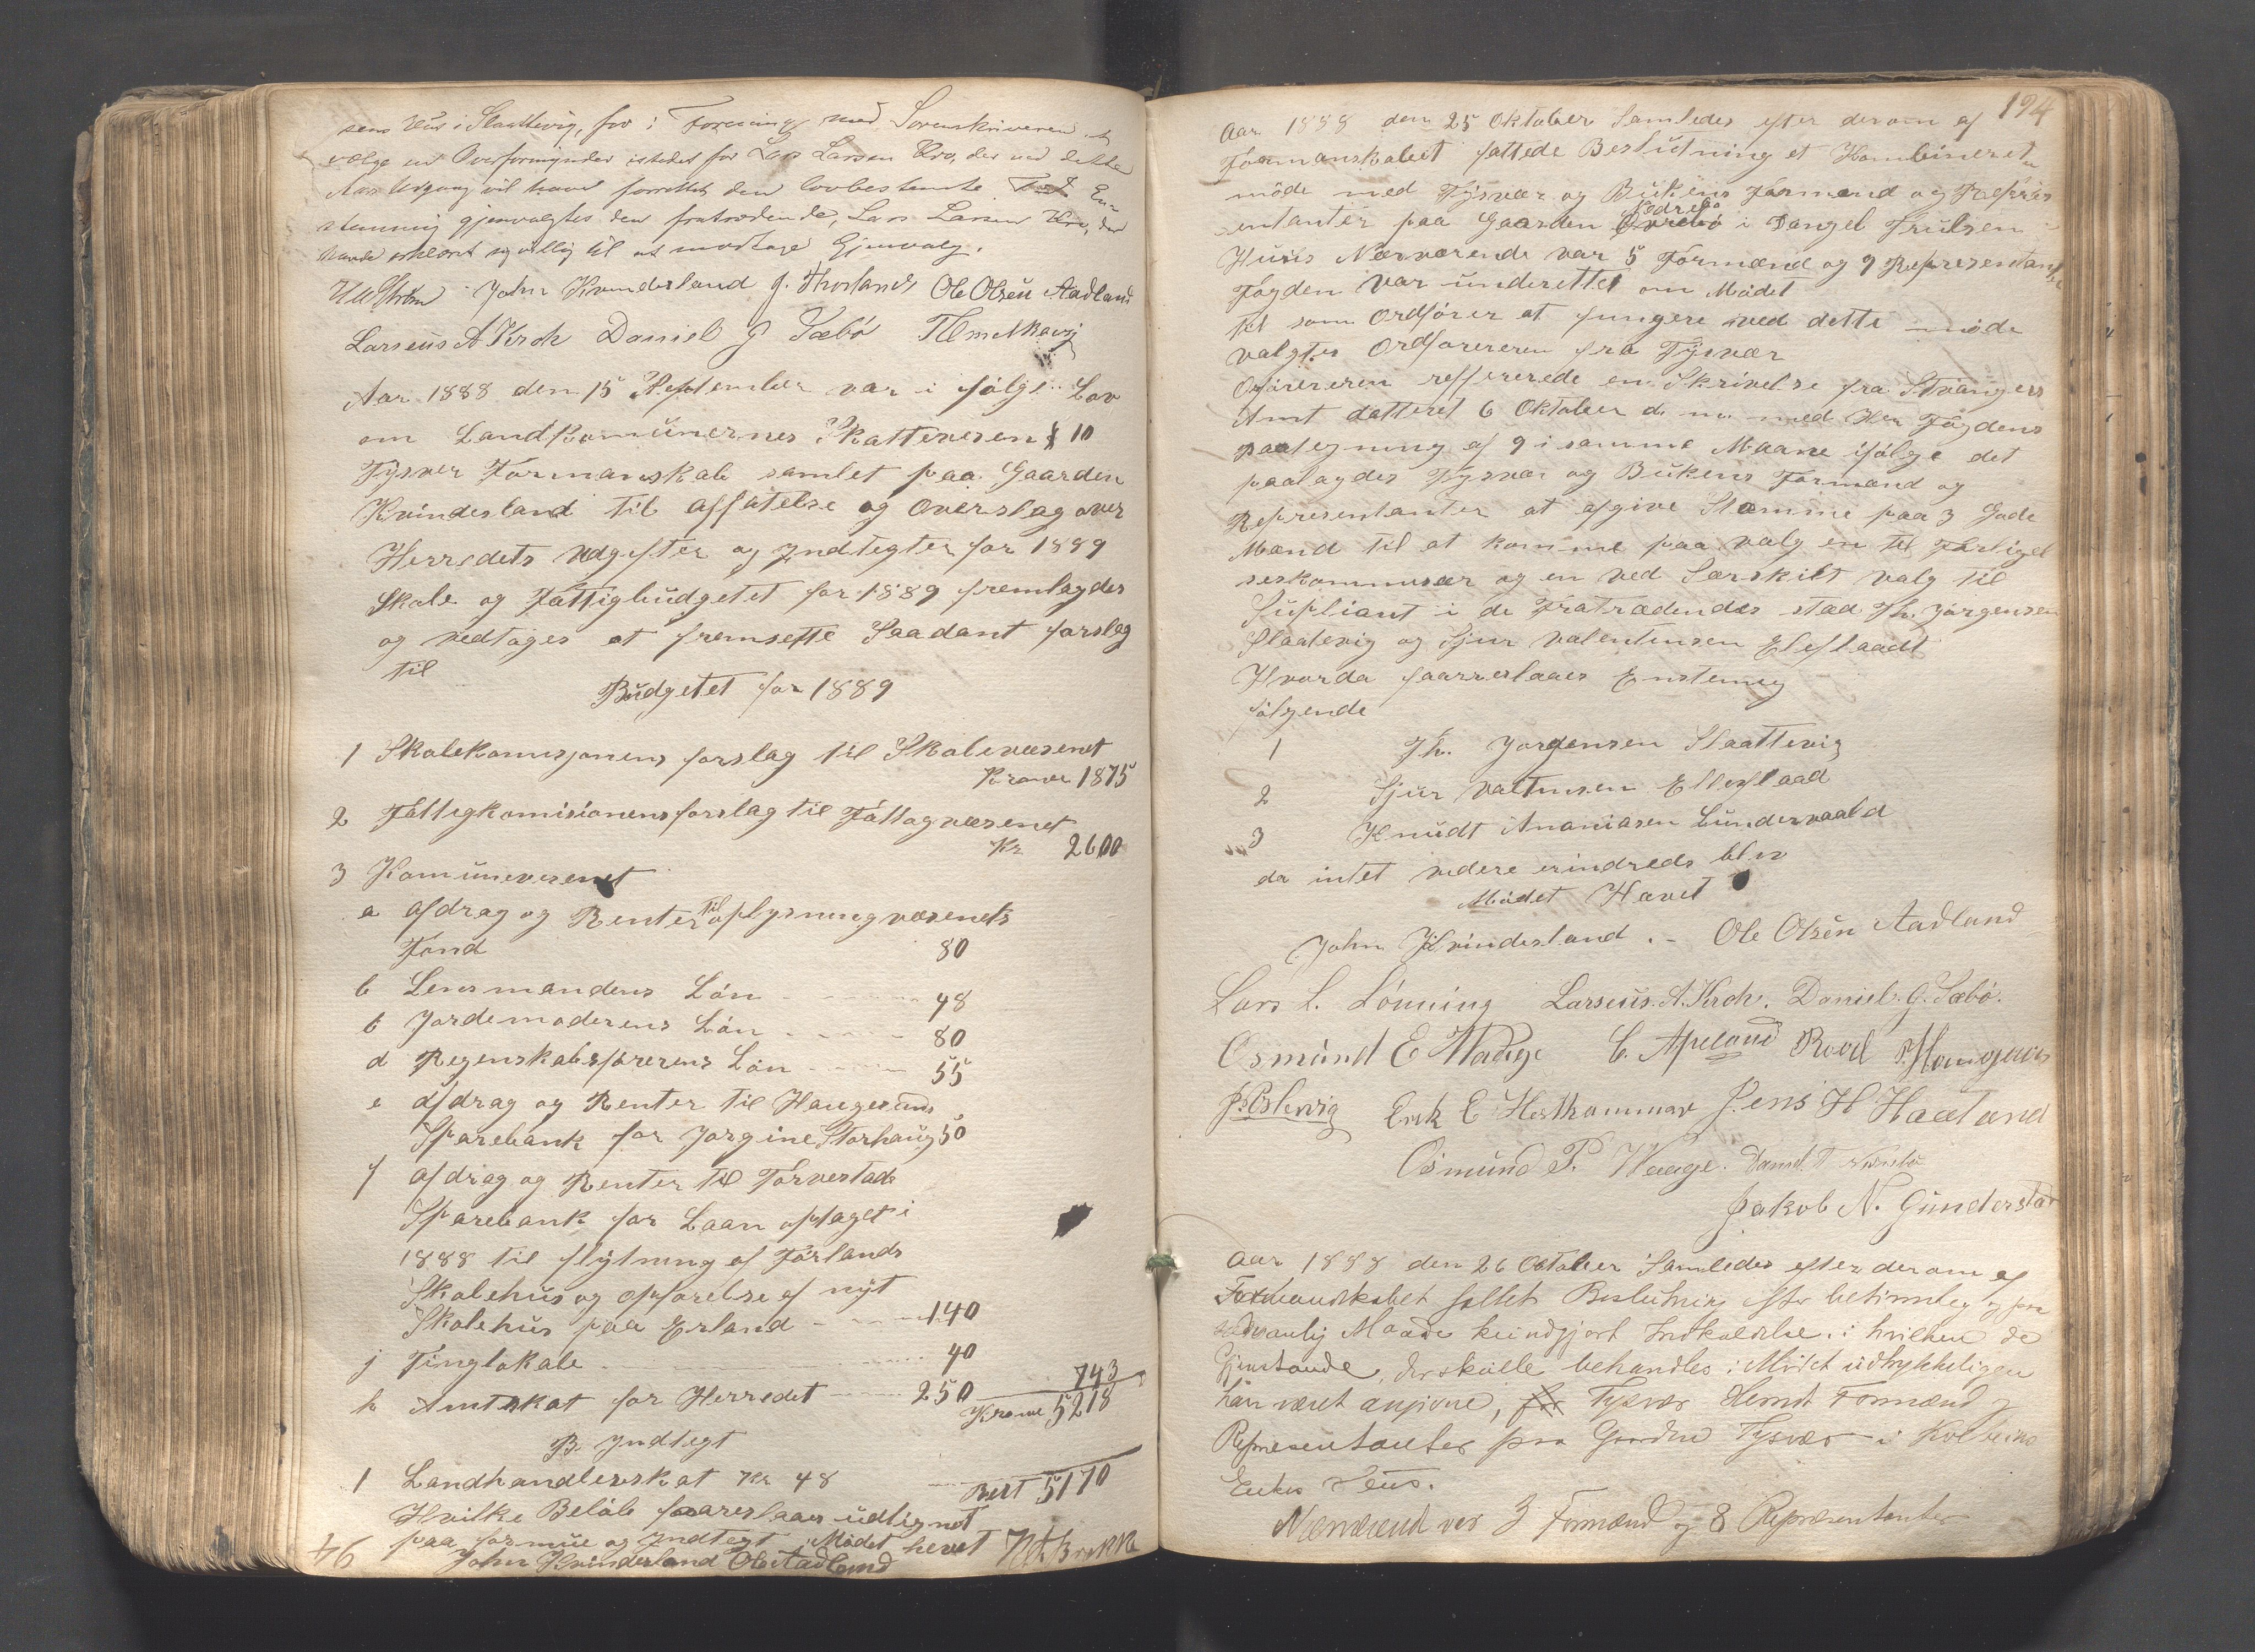 sens Hus i Slaattevig, for i Forening med Sorenskriveren at
vælge en Overformynder istedet for Lars Larsen Kro, der ved dette
Aars Udgang vil have forrettet den lovbestemte Tid En-
stemmig gjenvalgtes den fratrædende, Lars Larsen Kro, der
havde erklæret sig villig til at modtage Gjenvalg.
John Kvindesland J. Thorlands Ole Olsen Aadland
Larseus A Kroh Daniel G Sæbö
Aar 1888 den 15 September var i fölge Lov
om Landkomunernes Skattevesen § 10
Tysver Formanskab samlet paa Gaarden
Kvindesland til Affatelse og Overslag over
Herredets Udgifter og Indtegter for 1889
Skole og Fattigbudgetet for 1889 fremlagdes
og vedtoges at fremsette Saadant forslag
til
Budgetet for 1889
1 Skolekomisjonens forslag til Skolevæsenet
Krone 1875
2 Fattigkomisionens forslag til Fattigvæsenet
Kr 2600
3 Komunevesenet
a Afdrag og Renter til oplysningvæsenets
Fond 80
b Lensmandens Lön 48
c Jordemoderens Lön 80
d Regenskabsförerens Lön 55
e Afdrag og Renter til Haugesunds
Sparebank for Jorgine Storhaug 50
f Afdrag og Renter til Torvestads
Sparebank for Laan optaget i
1888 til flytning af Förlands
Skolehus og opförelse af nyt
Skolehus paa Erland 140
j Tinglokale 40
743
h Amtskat for Herredet 250
Krone 5218
B. Indtegt
1 Landhandlerskat Kr 48
Rest 5170
Hvilke Belöb foareslaaes udlignet
paa formue og Indtegt Mödet hevet
John Kvindesland Ole Aadland
94
194
Aar 1888 den 25 Oktober Samledes efter derom af
Formanskabet fattede Beslutning et Kombineret
möde med Tysvær og Bukens Formænd og Repres
entanter paa Gaarden i Dangel Trulsen
Huus Nærværende var 5 Formænd og 9 Representanter
Fogden var underettet om Mödet
til som Ordförer at fungere ved dette möde
valgtes Ordforereren fra Tysvær
Oförereren reffererede en Skrivelse fra Stvangers
Amt datteret 6 Oktober d. m. med Her Fogdens
paategning af 9 i samme Maane ifölge det
paalagdes Tysvær og Bukens Formænd og
Representanter at afgive Stæmme paa 3 Gode
Mænd til at komme paa valg en til Forligel
seskommisær og en ved Særskilt valg til
Supliant i de Fratrædendes stad Th. Jörgensen
Slaatevig og Sjur Valentinsen Eleflaadt
Hvorda foarreslaaes Enstemig
fölgende
1 Th. Jorgensen Slaattevig
2 Sjur Valtinsen Elleflaad
3 Knudt Ananiasen Lundervaald
da intet videre erindreds blev
Mödet Hævet
John Kvindesland. - Ole Olsen Aadland
Lars L. Lönning Larseus. A. Kroh. Daniel. G. Sæbö.
Osmund E Waage C. Apeland
Erik E Jens H Haaland
Osmund P. Waage.
Jakob N. Gunderstad
Aar 1888 den 26 Oktober Samledes efter derom af
Formandskabet fattet Beslutning efter betimelig og paa
sædvanlig Maade kundgjort Indkaldelse, i hvilken de
Gjenstande, der skulle behandles i Mödet udtrykkeligen
har været angivne, Tysvær Herreds Formænd og
Repræsentanter paa Gaarden Tysvær i Kolbeins
Eriks Huus.
Nærværend var 3 Formænd og 8 Repræsentanter